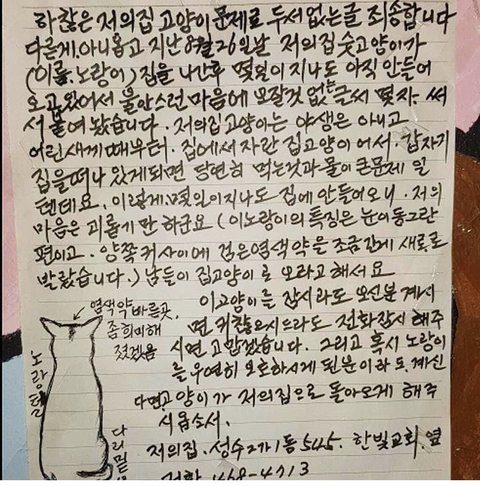 하찮은 저의집 고양이 문제로 두서 없는글 죄송합니다
다른게. 아니옵고 지난 8월 26일날 저의집 숫고양이가
(이름. 노랑이) 집을 나간후 몇일이 지나도 아직 안들어
오고 있어서 불안스런 마음에 모잘것 없는 글씨 몇자. 써
서 붙여 봤습니다. 저의집 고양이는 야생은 아니고
어린새끼 때부터. 집에서 자란 집고양이 어서. 갑자기
집을 떠나 있게되면 당연히 먹는것과 물이 큰문제 일
텐데요. 이렇게 몇일이 지나도 집에 안들어오니. 저의
마음은 괴롭기만 하군요 (이노랑이의 특징은 눈이 동그란
편이고. 양쪽 귀사이에 검은 염색약을 조금 길게 새로로
발랐습니다.) 남들이 집고양이로 오라고 해서요
이고양이를 잠시라도 보신분 계시
면 귀찮으시드라도 전화잠시 해주
시면 고맙겠습니다. 그리고 혹시 노랑이
를 우연히 보호하시게 된분이라도. 계신
다면 고양이가 저의집으로 돌아오게 해주
시옵소서.
저의집. 성수2가1동 545. 한빛교회. 옆
염색약 바른곳.
좀 희미해
졌겠음
노랑털